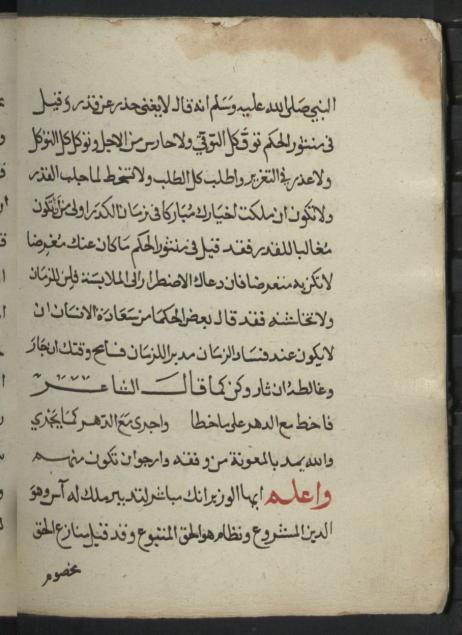 النبي صلى الله عليه وسلم انه قال لا يغنى حذر عن قدر وقيل
فى منثور الحكم توق كل التوقي ولا حارس من الاجل وتوكل كل التوكل
ولا عذر في التغرير واطلب كل الطلب ولا تتسخط لما جلب القدر
ولا تكون ان ملكت اختيارك مباركا فى زمان الكدر اولى من ان تكون
مغالبا للقدر فقد قيل فى منثور الحكم ما كان عنك معرضا
لا تكن به متعرضا فان دعاك الاضطرار الى الملابسة فلن للزمان
ولا تخاشنه فقد قال بعض الحكما من سعادة الانسان ان
لا يكون عند فساد الزمان مدبرا للزمان فسامح وقتك ان جار
وغالطه ان ثار وكن كما قال الشاعر
فاخط مع الدهر على ما خطا واجرى مع الدهر كما يجري
والله يمد بالمعونة من وفقه وارجو ان تكون منهم
واعلم ايها الوزير انك مباشر لتدبير ملك له اس وهو
الدين المشروع ونظام هو الحق المتبوع وقد قيل منازع الحق
مخصوم